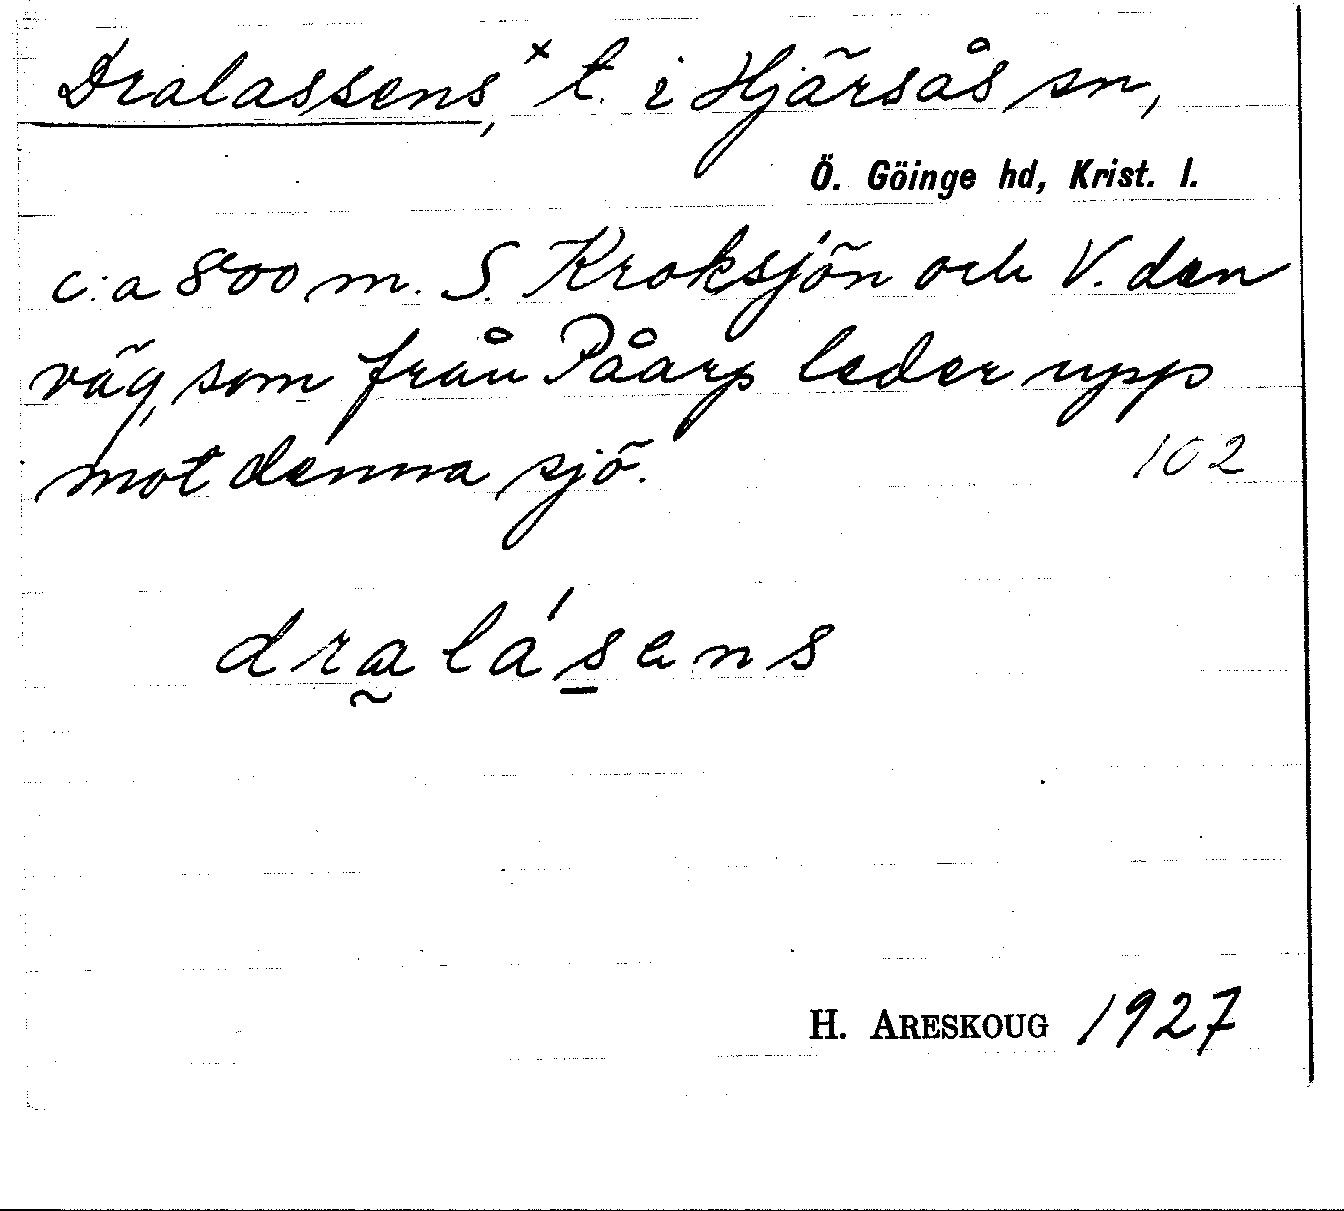 Dralassens,ˣ t. i Hjärsås sn,
Ö. Göinge hd, Krist. l.
c:a 800 m. S. Kroksjön och V. den
väg, som från Påarp leder upp
mot denna sjö.
102
dra̰lás̱ens
H. ARESKOUG 1927